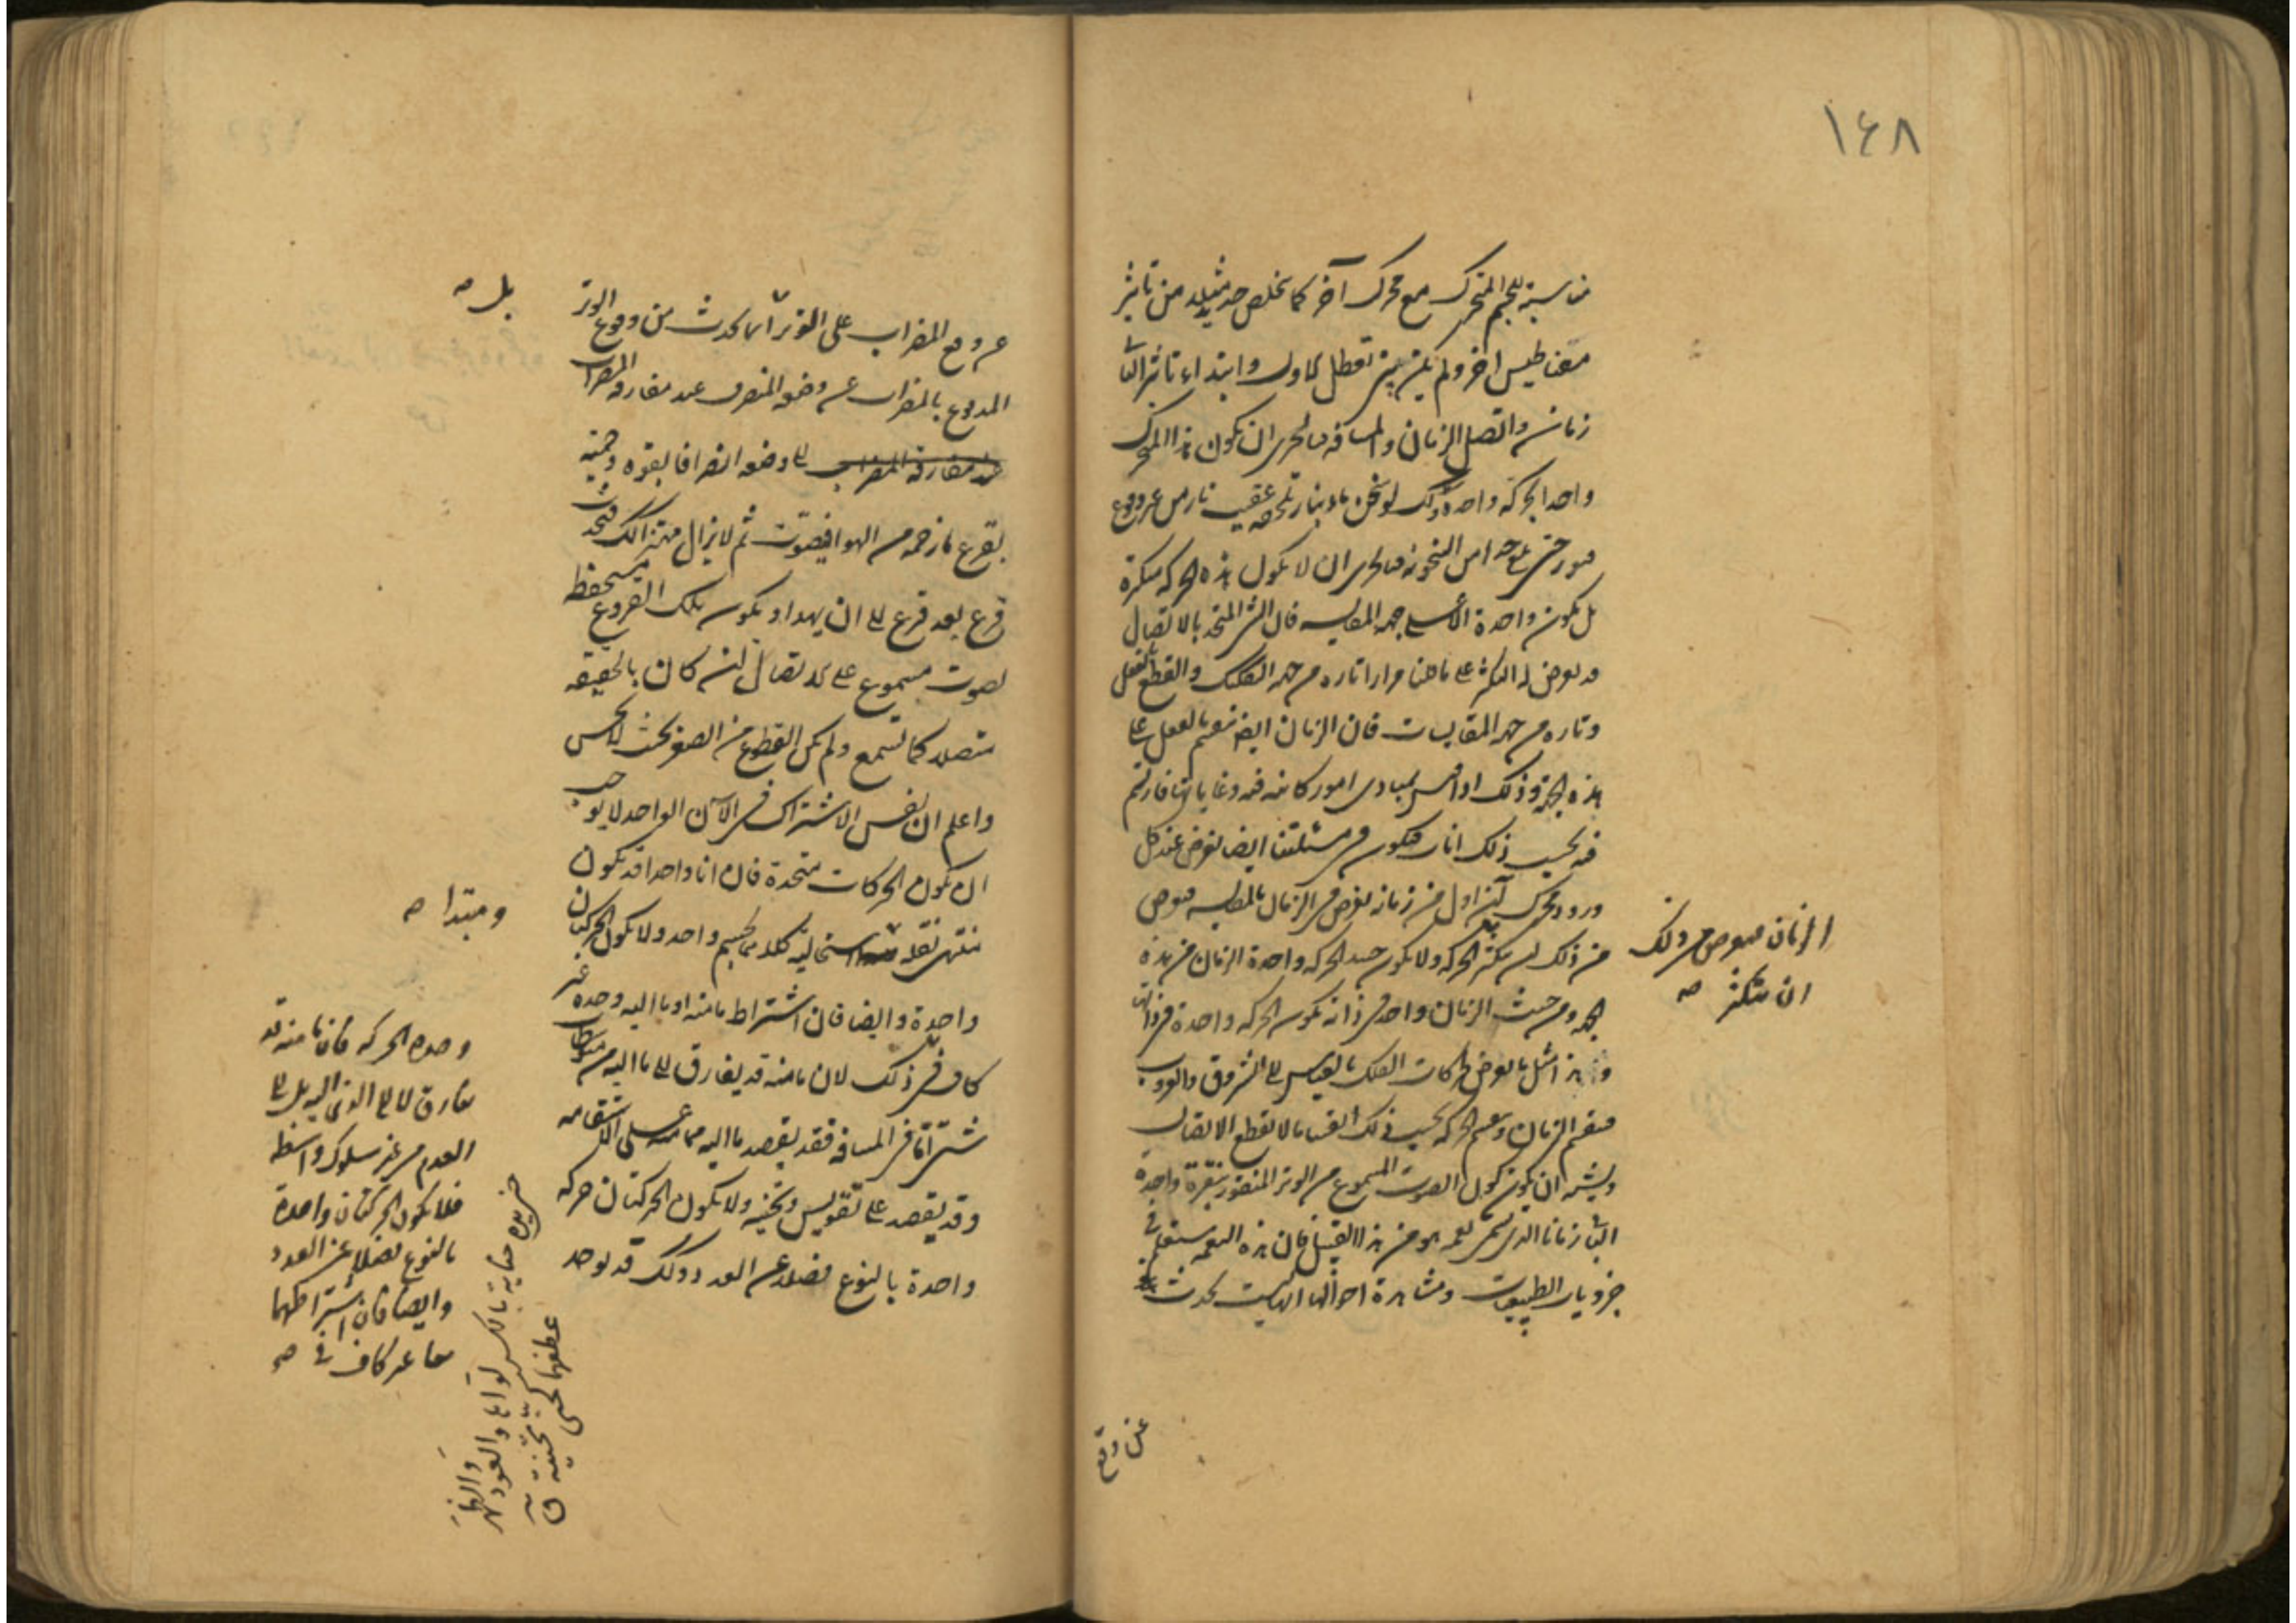 ١٤٨
مناسبة للجسم المتحرك مع محرك آخر كما تخلص حديد من تاثير
مغناطيس اخر ولم يكن بين تعطل الاول وابتداء تاثير الثانى
زمان واتصل الزمان والمسافه فبالحرى ان يكون هذا المتحرك
واحدا بحركة واحدة وكذلك لو سخن ماء بنار تلحقه عقيب نار من غير وقوع
فتور حتى بلغ حدا من السخونة فبالحرى ان لا يكون هذه الحركه متكثرة
بل يكون واحدة الا على جهه المقايسه فان الشىء المتحد بالاتصال
قد يعرض له التكثر على ما علمنا مرارا تاره من جهه التفكيك والقطع بالفعل
وتاره من جهه المقايسات فان الزمان ايضا ينقسم بالفعل على
هذه الجهة وذلك اذا قيس لمبادى امور كائنه فيه وغاياتها فارتسم
فيه بحسب ذلك انات فيكون فى مسئلتنا ايضا يعرض عند كل
ورود محرك آن اول من زمانه يعرض فى الزمان بالمقايسه فيعرض
من ذلك ان يتكثر الحركه ولا يكون حينئذ الحركه واحدة الزمان من هذه
الجهه ومن حيث الزمان واحد فى ذاته تكون الحركه واحدة فى ذاتها
وهذا مثل ما يعرض لحركات الفلك بالقياس الى الشروق والغروب
فينقسم الزمان وينقسم الحركه بحسب ذلك انقساما لا يقطع الاتصال
ويشبه ان يكون كون الصوت المسموع من الوتر المنقور بنقرة واحدة
الباقى زمانا الذى يسمى نغمه هو من هذا القبيل فان هذه النغمه ستعلم فى
جزويات الطبيعيات ومشاهدة احوالها انها ليست تحدث
الزمان فيعرض من ذلك
ان يتكثر صه
عن وقع
عن وقع المضراب على الوتر انما يحدث من وقوع الوتر
المدفوع بالمضراب عن وضعه المنصرف عند مفارقه المضراب
عند مفارقة المضراب الى وضعه انصرافا بقوه وحميه
يقرع ما زحمه من الهوا فيصوت ثم لا يزال مهتزا كذلك فيحدث
قرع بعد قرع الى ان يهدا ويكون تلك القروع مستحفظ
لصوت مسموع على الاتصال لئن كان بالحقيقه
متصلا كما تسمع ولم يكن القطوع من الصغر بحيث لا يحس
واعلم ان نفس الاشتراك فى الآن الواحد لا يوجب
ان يكون الحركات متحدة فان انا واحدا قد يكون
منتهى نقلة استحاليه كلاهما لجسم واحد ولا يكون الحركتان
واحدة وايضا فان اشتراط ما منه او ما اليه وحده غير
كاف فى ذلك لان ما منه قد يفارق الى ما اليه من متوسطات
شتى اما فى المسافه فقد يقصد ما اليه مما منه على الاستقامه
وقد يقصد على تقويس وتحنيه ولا يكون الحركتان حركه
واحدة بالنوع فضلا عن العدد وكذلك قد يوجد
بل صه
ومبتدا صه
وحدة الحركه فان ما منه قد
يفارق لا الى الذى اليه بل الى
العدم من غير سلوك واسطه
فلا يكون الحركتان واحدة
بالنوع فضلا عن العدد
وايضا فان اشتراطهما
معا غير كاف فى صه
حناية بالكسر لواها والعود والظهر
عطفهما كحنى تحنية ق